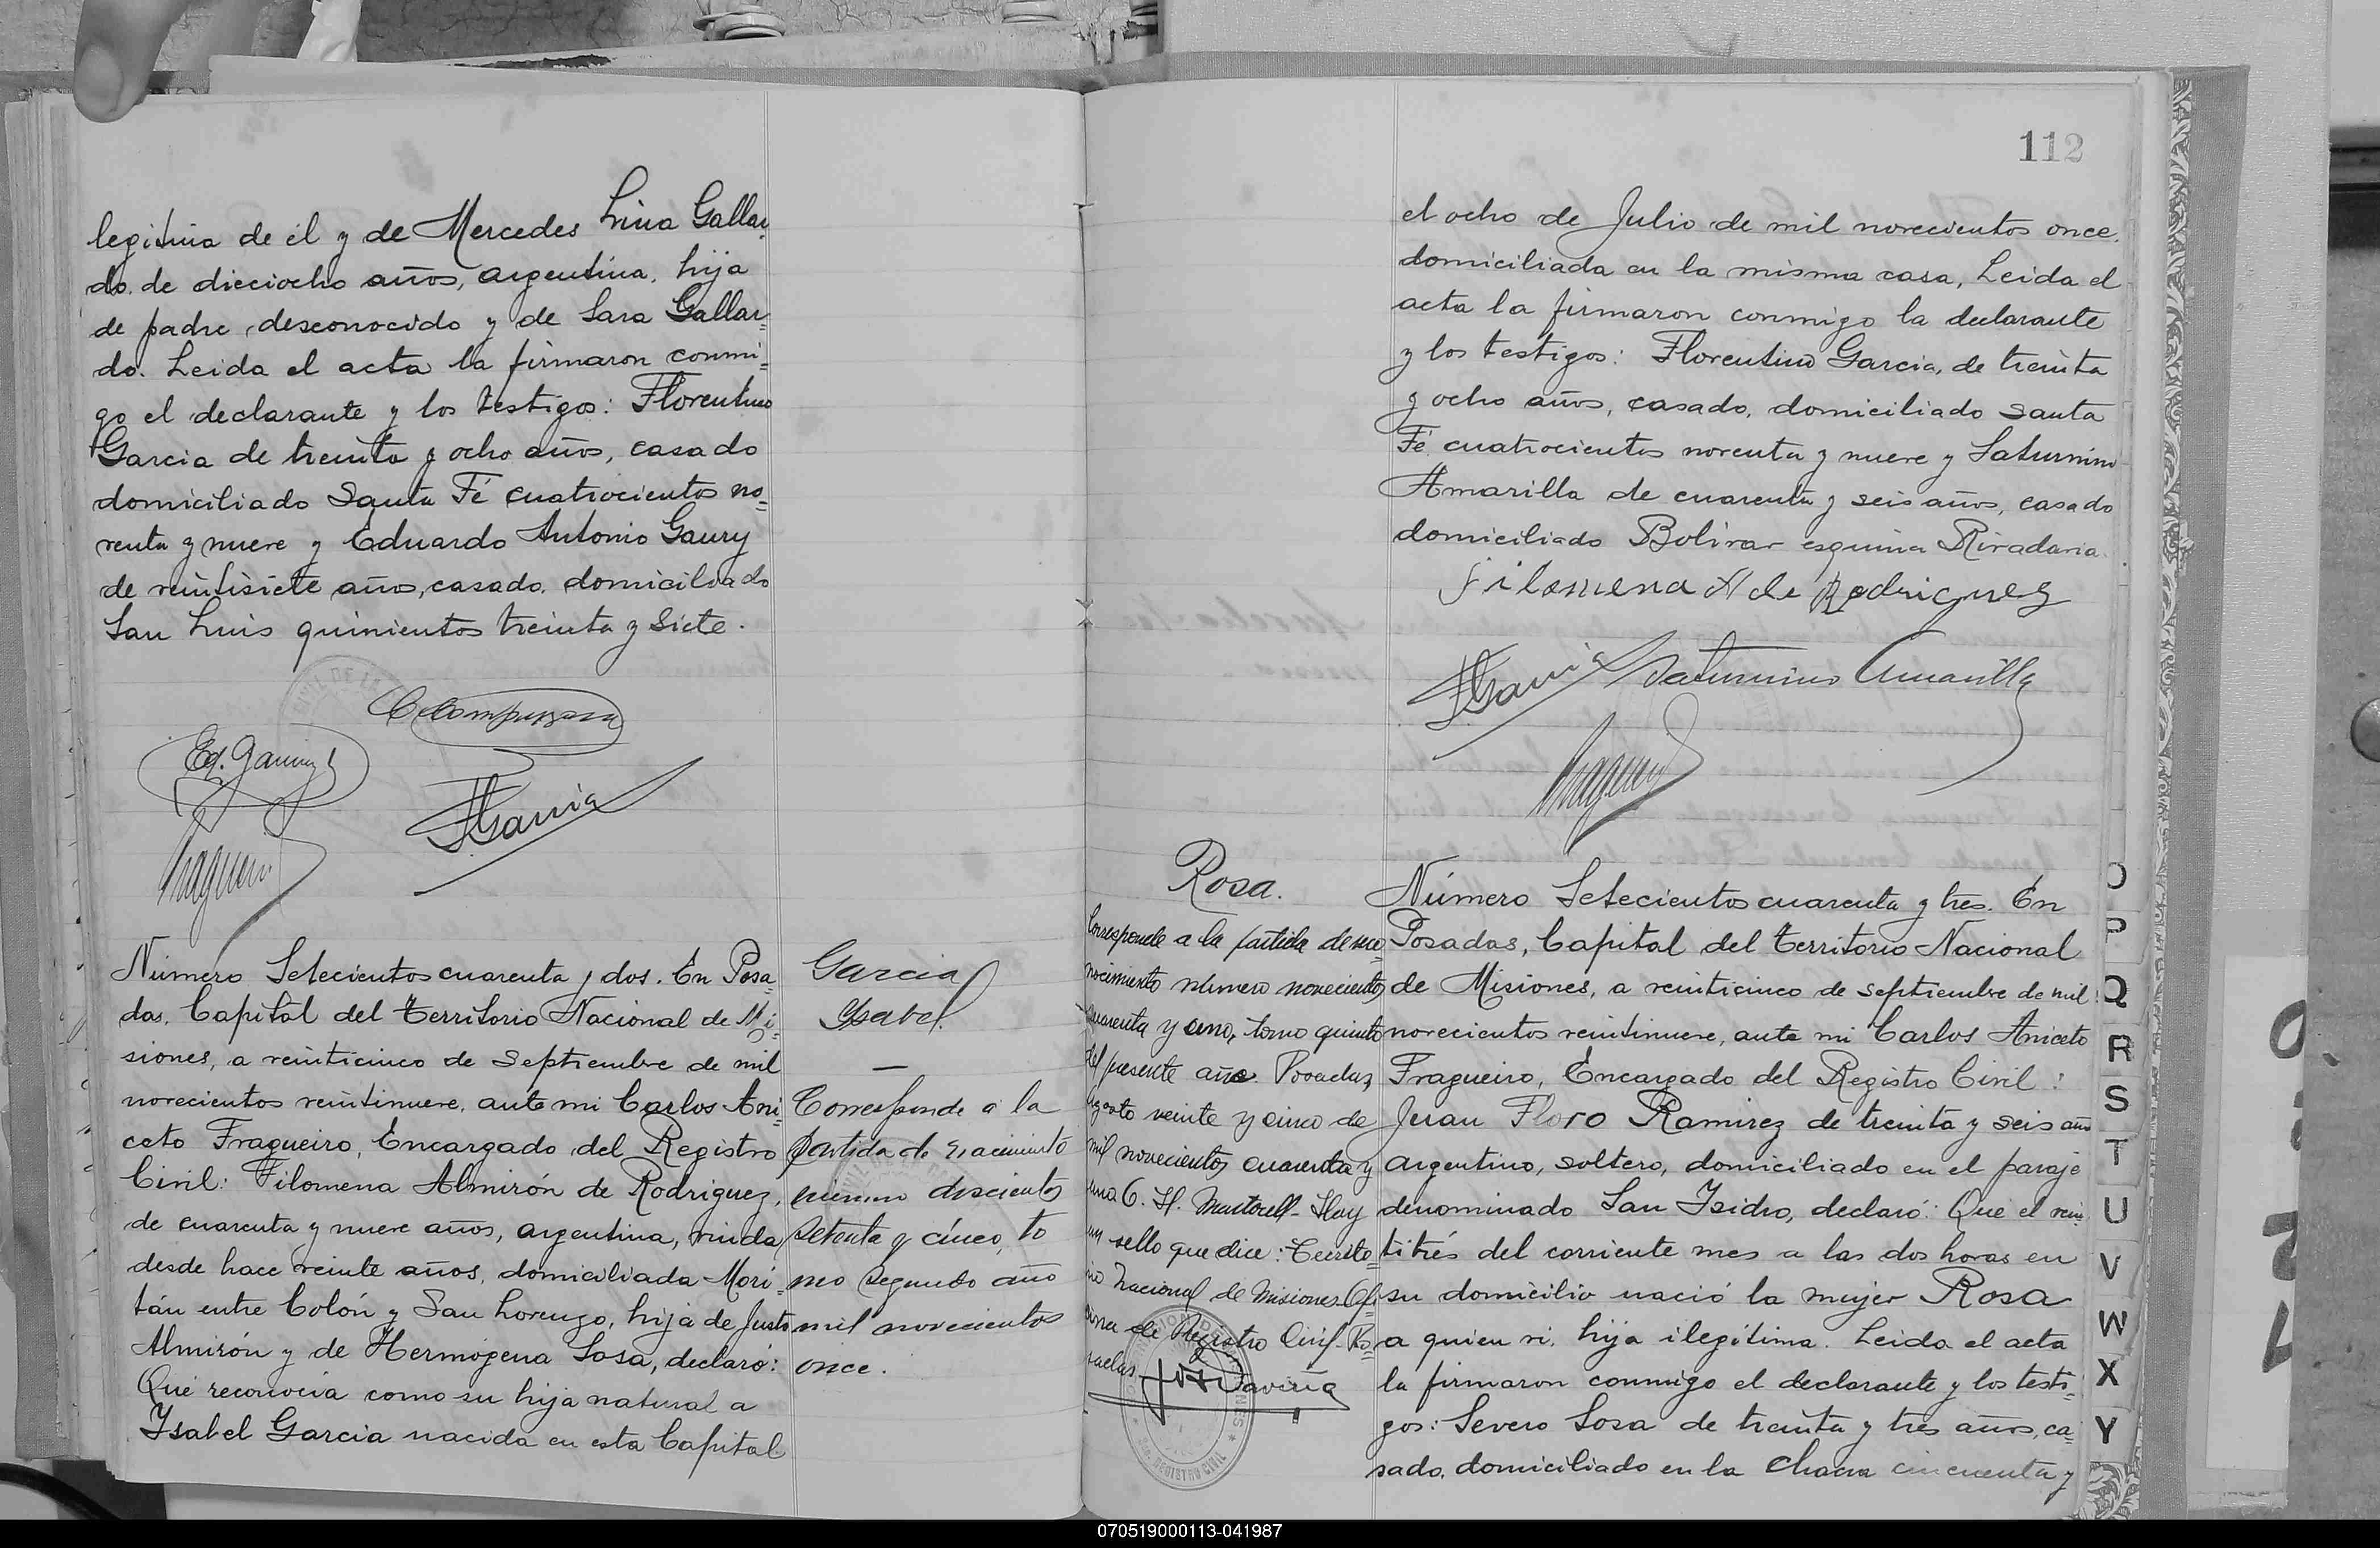 legitima de él y de Mercedes Lina Gallar-
do. de dieciocho años, argentina, hija
de padre desconocido y de Sara Gallar=
do. Leida el acta la firmaron conmi=
go el declarante y los testigos: Florentino
Garcia de treinta y ocho años, casado
domiciliado Santa Fé cuatrocientos no=
venta y nueve y Eduardo Antonio Gaury
de veintisiete años, casado. domiciliado
San Luis quinientos treinta y siete.
Ed. Gaury
FGarcia
Número Setecientos cuarenta y dos. En Posa=
das. Capital del Territorio Nacional de Mi=
siones, a veinticinco de Septiembre de mil
novecientos veintinueve, ante mi Carlos Ani
ceto Fragueiro, Encargado del Registro
Civil: Filomena Almirón de Rodriguez,
de cuarenta y nueve años, argentina, viuda
desde hace veinte años, domiciliada Mori=
tán entre Colón y San Lorenzo, hija de Justo
Almirón y de Hermógena Sosa, declaró:
Que reconocia como su hija natural a
Ysabel Garcia nacida en esta Capital
Garcia
Ysabel
Corresponde a la
partida de nacimiento
número doscientos
setenta y cinco, to
mo segundo año
mil novecientos
once.
112
el ocho de Julio de mil novecientos once.
domiciliada en la misma casa, Leida el
acta la firmaron conmigo la declarante
y los testigos: Florentino Garcia, de treinta
y ocho años, casado, domiciliado Santa
Fé cuatrocientos noventa y nueve y Saturnino
Amarilla de cuarenta y seis años, casado
domiciliado Bolivar esquina Rivadavia.
filomena A de Rodriguez
FGarcia Saturnino Amarilla
Rosa.
Corresponde a la partida de reco=
nocimiento número novecientos
cuarenta y uno, tomo quinto
del presente año. Posadas,
agosto veinte y cinco de
mil novecientos cuarenta y
uno C. H. Martorell- Hay
un sello que dice: Territo=
rio Nacional de Misiones-Ofi=
cina de Registro Civil-Po=
sadas
Número Setecientos cuarenta y tres. En
Posadas, Capital del Territorio Nacional
de Misiones, a veinticinco de Septiembre de mil
novecientos veintinueve, ante mi Carlos Aniceto
Fragueiro, Encargado del Registro Civil:
Juan Floro Ramirez de treinta y seis años
argentino, soltero, domiciliado en el paraje
denominado San Ysidro, declaró: Que el vein
titrés del corriente mes a las dos horas en
su domicilio nació la mujer Rosa
a quien vi. hija ilegítima. Leida el acta
la firmaron conmigo el declarante y los testi=
gos: Severo Sosa de treinta y tres años, ca=
sado, domiciliado en la Chacra cincuenta y
O
P
Q
R
S
T
U
V
W
X
Y
070519000113-041987